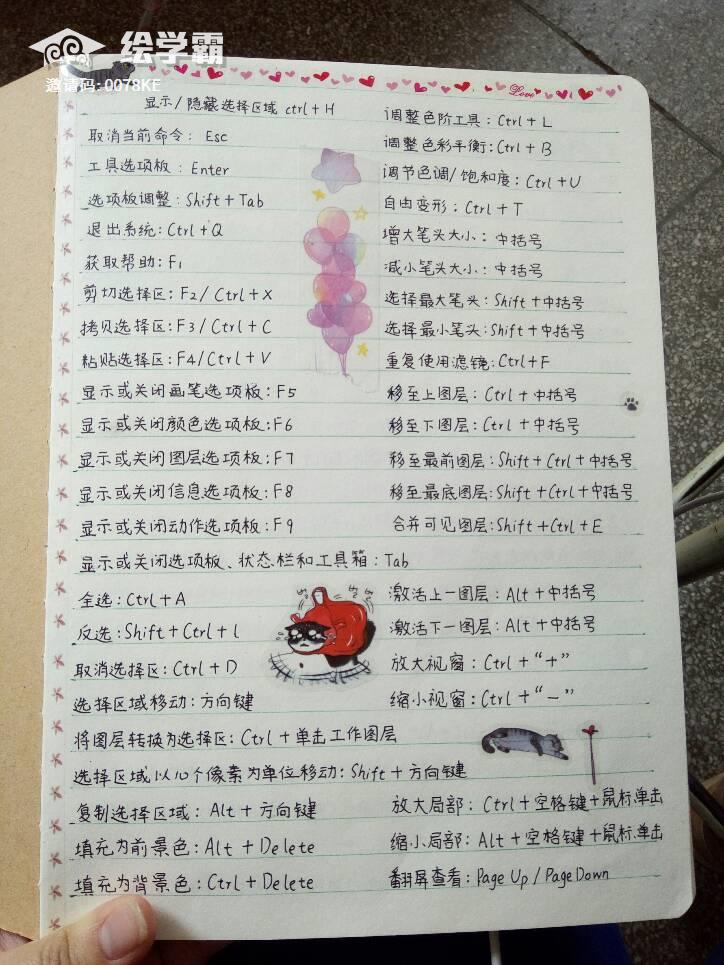 绘学霸
邀请码:0078KE
Love
显示/隐藏选择区域 ctrl+H
取消当前命令: Esc
工具选项板: Enter
选项板调整: Shift+Tab
退出系统: Ctrl+Q
获取帮助: F1
剪切选择区: F2/Ctrl+X
拷贝选择区: F3/Ctrl+C
粘贴选择区: F4/Ctrl+V
显示或关闭画笔选项板: F5
显示或关闭颜色选项板: F6
显示或关闭图层选项板: F7
显示或关闭信息选项板: F8
显示或关闭动作选项板: F9
显示或关闭选项板、状态栏和工具箱: Tab
全选: Ctrl+A
反选: Shift+Ctrl+l
取消选择区: Ctrl+D
选择区域移动: 方向键
将图层转换为选择区: Ctrl+单击工作图层
选择区域以10个像素为单位移动: Shift+方向键
复制选择区域: Alt+方向键
填充为前景色: Alt+Delete
填充为背景色: Ctrl+Delete
调整色阶工具: Ctrl+L
调整色彩平衡: Ctrl+B
调节色调/饱和度: Ctrl+U
自由变形: Ctrl+T
增大笔头大小: 中括号
减小笔头大小: 中括号
选择最大笔头: Shift+中括号
选择最小笔头: Shift+中括号
重复使用滤镜: Ctrl+F
移至上图层: Ctrl+中括号
移至下图层: Ctrl+中括号
移至最前图层: Shift+Ctrl+中括号
移至最底图层: Shift+Ctrl+中括号
合并可见图层: Shift+Ctrl+E
激活上一图层: Alt+中括号
激活下一图层: Alt+中括号
放大视窗: Ctrl+“+”
缩小视窗: Ctrl+“-”
放大局部: Ctrl+空格键+鼠标单击
缩小局部: Alt+空格键+鼠标单击
翻屏查看: Page Up/Page Down